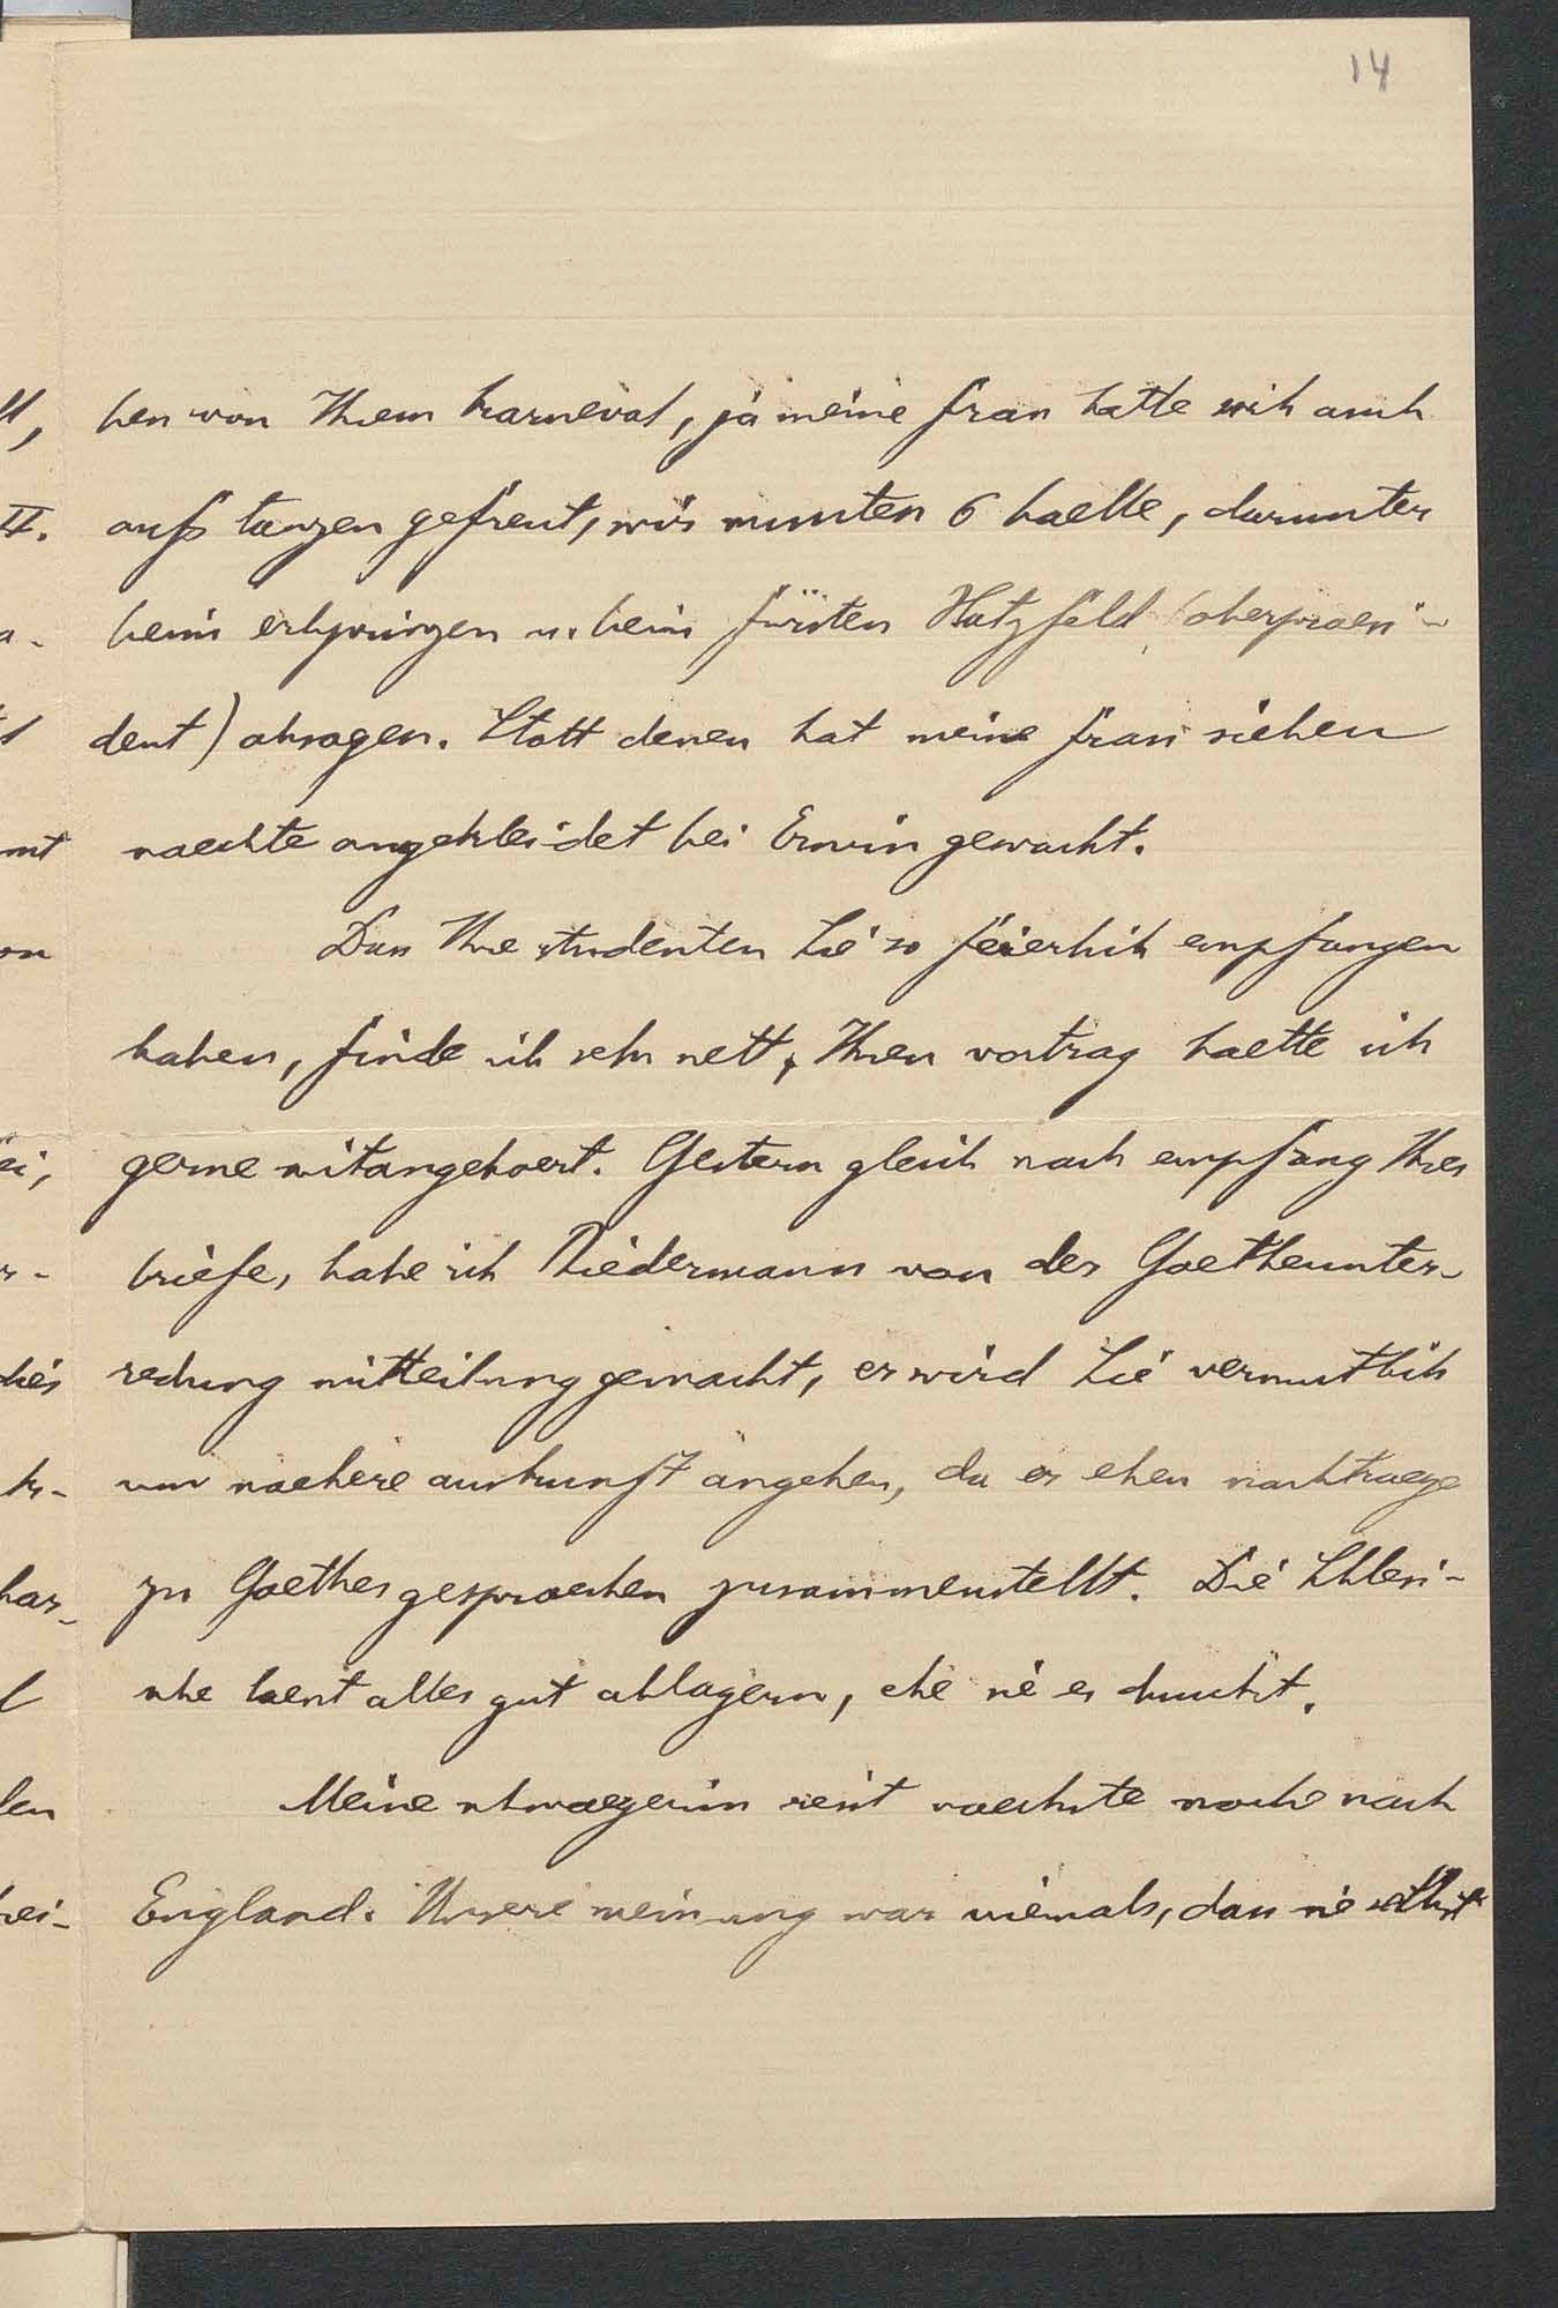 14
ben von Ihrem karneval, ja meine frau hatte sich auch
aufs tanzen gefreut, wir mussten 6 baelle, darunter
beim erbprinzen u. beim fürsten Hatzfeld (oberpraesi-
dent) absagen. Statt denen hat meine frau sieben
naechte angekleidet bei Erwin gewacht.
Dass Ihre studenten Sie so feierlich empfangen
haben, finde ich sehr nett, Ihren vortrag haette ich
gerne mitangehoert. Gestern gleich nach empfang Ihres
briefes habe ich Biedermann von der Goetheunter-
redung mitteilung gemacht, er wird Sie vermutlich
um naehere auskunft angehen, da er eben nachtraege
zu Goethes gespraechen zusammenstellt. Die Schlesi-
sche laesst alles gut ablagern, ehe sie es druckt.
Meine schwaegerin reist naechste woche nach
England. Unsere meinung war niemals, dass sie selbst
II.
a-
mt
on
ei,
r-
har-
l
len